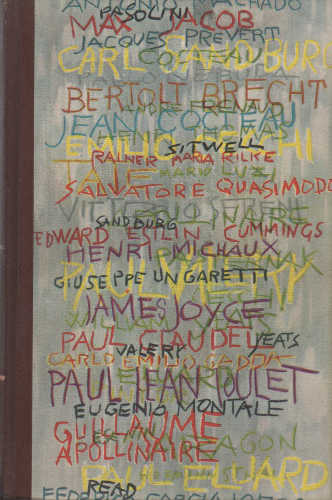 ANTONIO MACHADO
PASOLINI
MAX JACOB
JACQUES PREVERT
CARL SANDBURG
BERTOLT BRECHT
ANDRE FRENAUD
JEAN COCTEAU
EMILIO CECCHI
SITWELL
RAINER MARIA RILKE
TATE
MARIO LUZI
SALVATORE QUASIMODO
SANDBURG
EDWARD ESTLIN CUMMINGS
HENRI MICHAUX
PAUL VALERY
GIUSEPPE UNGARETTI
JAMES JOYCE
WILLIAM
PAUL CLAUDEL
YEATS
VALERY
CARLO EMILIO GADDA
PAUL JEAN TOULET
EUGENIO MONTALE
GUILLAUME
ARAGON
APOLLINAIRE
PAUL ELUARD
READ